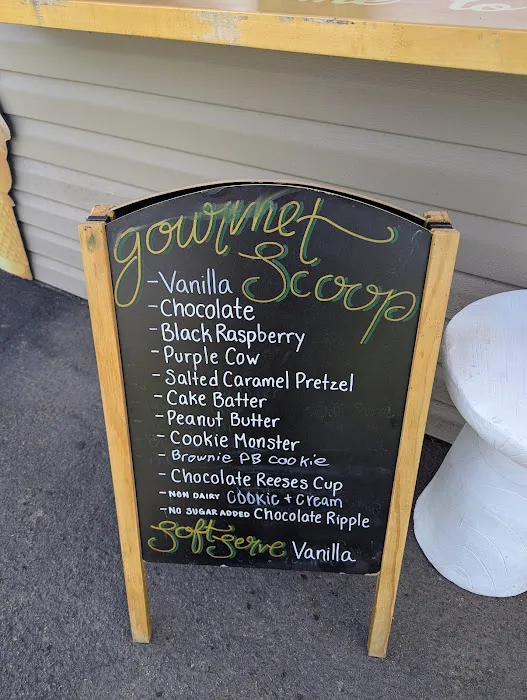 gourmet
Scoop
- Vanilla
- Chocolate
- Black Raspberry
- Purple Cow
- Salted Caramel Pretzel
- Cake Batter
- Peanut Butter
- Cookie Monster
- Brownie PB Cookie
- Chocolate Reeses Cup
- NON DAIRY Cookie + Cream
- NO SUGAR ADDED Chocolate Ripple
Soft Serve Vanilla